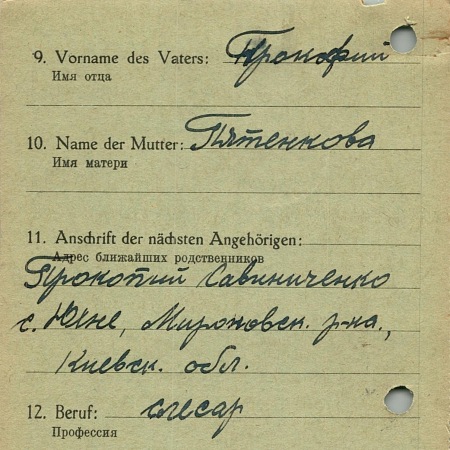 9. Vorname des Vaters: Прокофий
Имя отца
10. Name der Mutter: Пятенкова
Имя матери
11. Anschrift der nächsten Angehörigen:
Адрес ближайших родственников
Прокопий Савиниченко
с. Юхне, Мироновск. р-на.,
Киевск. обл.
12. Beruf: слесар
Профессия